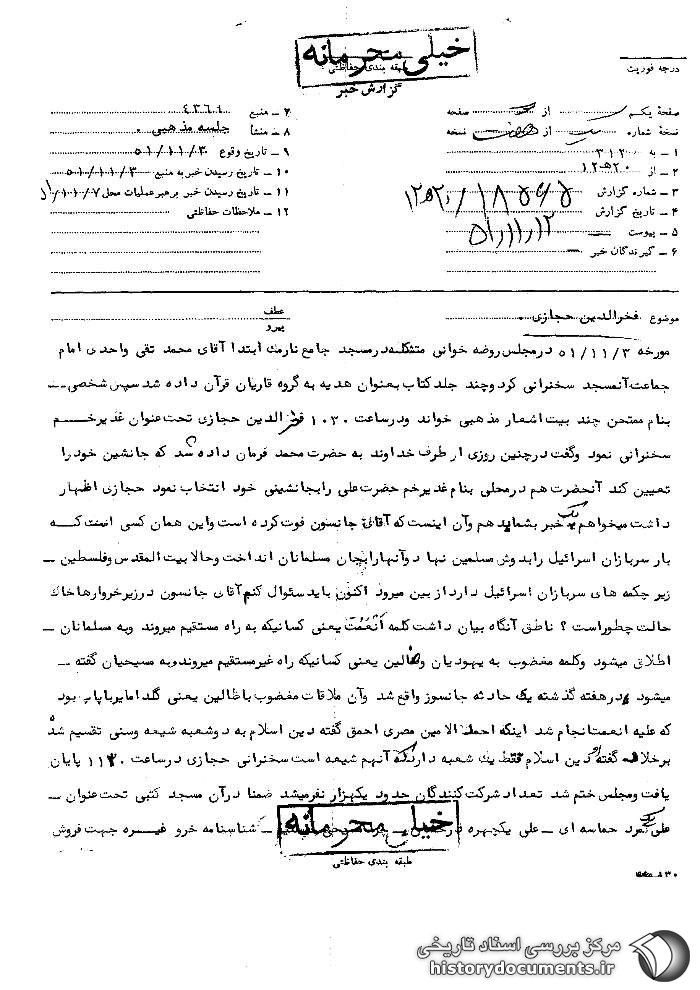 خیلی محرمانه
طبقه بندی حفاظتی
گزارش خبر
درجه فوریت
صفحهٔ یکم از صفحه
نسخهٔ شماره از هفت نسخه
۱ ـ به ۳۱۲
۲ ـ از ۱۲۵۲۰
۳ ـ شماره گزارش
۴ ـ تاریخ گزارش ۵۱/۱۱/۱۲
۵ ـ پیوست
۶ ـ گیرندگان خبر
۷ ـ منبع ۴۳۶۱
۸ ـ منشأ جلسه مذهبی .
۹ ـ تاریخ وقوع ۵۱/۱۱/۳
۱۰ ـ تاریخ رسیدن خبر به منبع ۵۱/۱۱/۳
۱۱ ـ تاریخ رسیدن خبر برهبر عملیات محل
۱۲ ـ ملاحظات حفاظتی
موضوع فخرالدین حجازی .
عطف
پیرو
مورخه ۵۱/۱۱/۳ درمجلس روضه خوانی متشکله درمسجد جامع نارمک ابتدا آقای محمد تقی واحدی امام
جماعت آنمسجد سخنرانی کرد و چند جلد کتاب بعنوان هدیه به گروه قاریان قرآن داده شد سپس شخصی ـ
بنام ممتحن چند بیت اشعار مذهبی خواند ودرساعت ۱۰۳۰ فخرالدین حجازی تحت عنوان غدیرخم
سخنرانی نمود وگفت درچنین روزی از طرف خداوند به حضرت محمد فرمان داده شد که جانشین خود را
تعیین کند آنحضرت هم درمحلی بنام غدیرخم حضرت علی را بجانشینی خود انتخاب نمود حجازی اظهار
داشت میخواهم یک خبر بشما بدهم وآن اینست که آقای جانسون فوت کرده است واین همان کسی است که
بار سربازان اسرائیل را بدوش مسلمین نهاد و آنها را بجان مسلمانان انداخت وحالا بیت المقدس وفلسطین ـ
زیر چکمه های سربازان اسرائیل دارد از بین میرود اکنون باید سئوال کنم آقای جانسون درزیر خروارها خاک
حالت چطور است ؟ ناطق آنگاه بیان داشت کلمه أنعمت یعنی کسانیکه به راه مستقیم میروند وبه مسلمانان ـ
اطلاق میشود وکلمه مغضوب به یهودیان وضالین یعنی کسانیکه راه غیرمستقیم میروند وبه مسیحیان گفته ـ
میشود ودرهفته گذشته یک حادثه جانسوز واقع شد وآن ملاقات مغضوب باظالین یعنی گلدامایر باپاپ بود
که علیه انعمت انجام شد اینکه احمد الامین مصری احمق گفته دین اسلام به دوشعبه شیعه وسنی تقسیم شده
برخلاف گفته او دین اسلام فقط یک شعبه دارد که آنهم شیعه است سخنرانی حجازی درساعت ۱۱۳۰ پایان
یافت ومجلس ختم شد تعداد شرکت کنندگان حدود یکهزار نفر میشد ضمنا درآن مسجد کتبی تحت عنوان ـ
علی یک مرد حماسه ای ـ علی یکچهره شناسنامه خرو غیره جهت فروش
خیلی محرمانه
طبقه بندی حفاظتی
مرکز بررسی اسناد تاریخی
historydocuments.ir